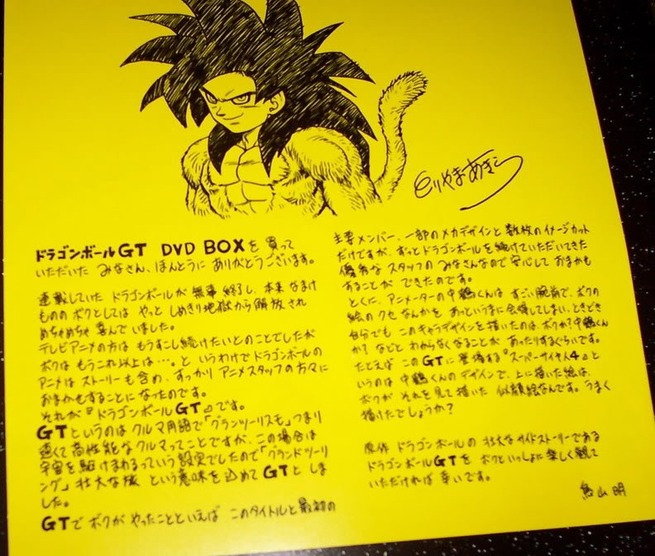 とりやまあきら
ドラゴンボールGT DVD BOXを買って
いただいた みなさん、ほんとうに ありがとうございます。
連載していた ドラゴンボールが 無事 終了し、本来 なまけ
ものの ボクとしては やっと しめきり地獄から 解放され
めちゃめちゃ 喜んで いました。
テレビアニメの方は もうすこし続けたいとのことでしたが
ボクは もうこれ以上は…。と いうわけで ドラゴンボールの
アニメは ストーリーも含め、すっかり アニメスタッフの方々に
おまかせすることに なったのです。
それが『ドラゴンボールGT』です。
GTというのは クルマ用語で「グランツーリスモ」つまり
速くて高性能な クルマってことですが、この場合は
宇宙を駆けまわるっていう設定でしたので「グランドツーリ
ング」壮大な旅 という意味を込めて GTと しま
した。
GTで ボクが やったことといえば このタイトルと 最初の
主要メンバー、一部のメカデザインと 数枚のイメージカット
だけですが、ずっとドラゴンボールを 続けていただいてきた
優秀な スタッフの みなさんなので 安心して おまかせ
することが できたのです。
とくに、アニメーターの中鶴くんは すごい腕前で、ボクの
絵の クセ なんかを あっというまに会得してしまい、ときどき
自分でも このキャラデザインを描いたのは ボクか?中鶴くん
か?などと わからなくなることが あったりするぐらいです。
たとえば この GTに登場する『スーパーサイヤ人4』と
いうのは 中鶴くんの デザインで、上に描いた絵は、
ボクが それを見て描いた 似顔絵なんです。うまく
描けたでしょうか?
原作 ドラゴンボールの 壮大な サイドストーリーである
ドラゴンボールGTを ボクといっしょに 楽しく 観て
いただければ 幸いです。
鳥山 明